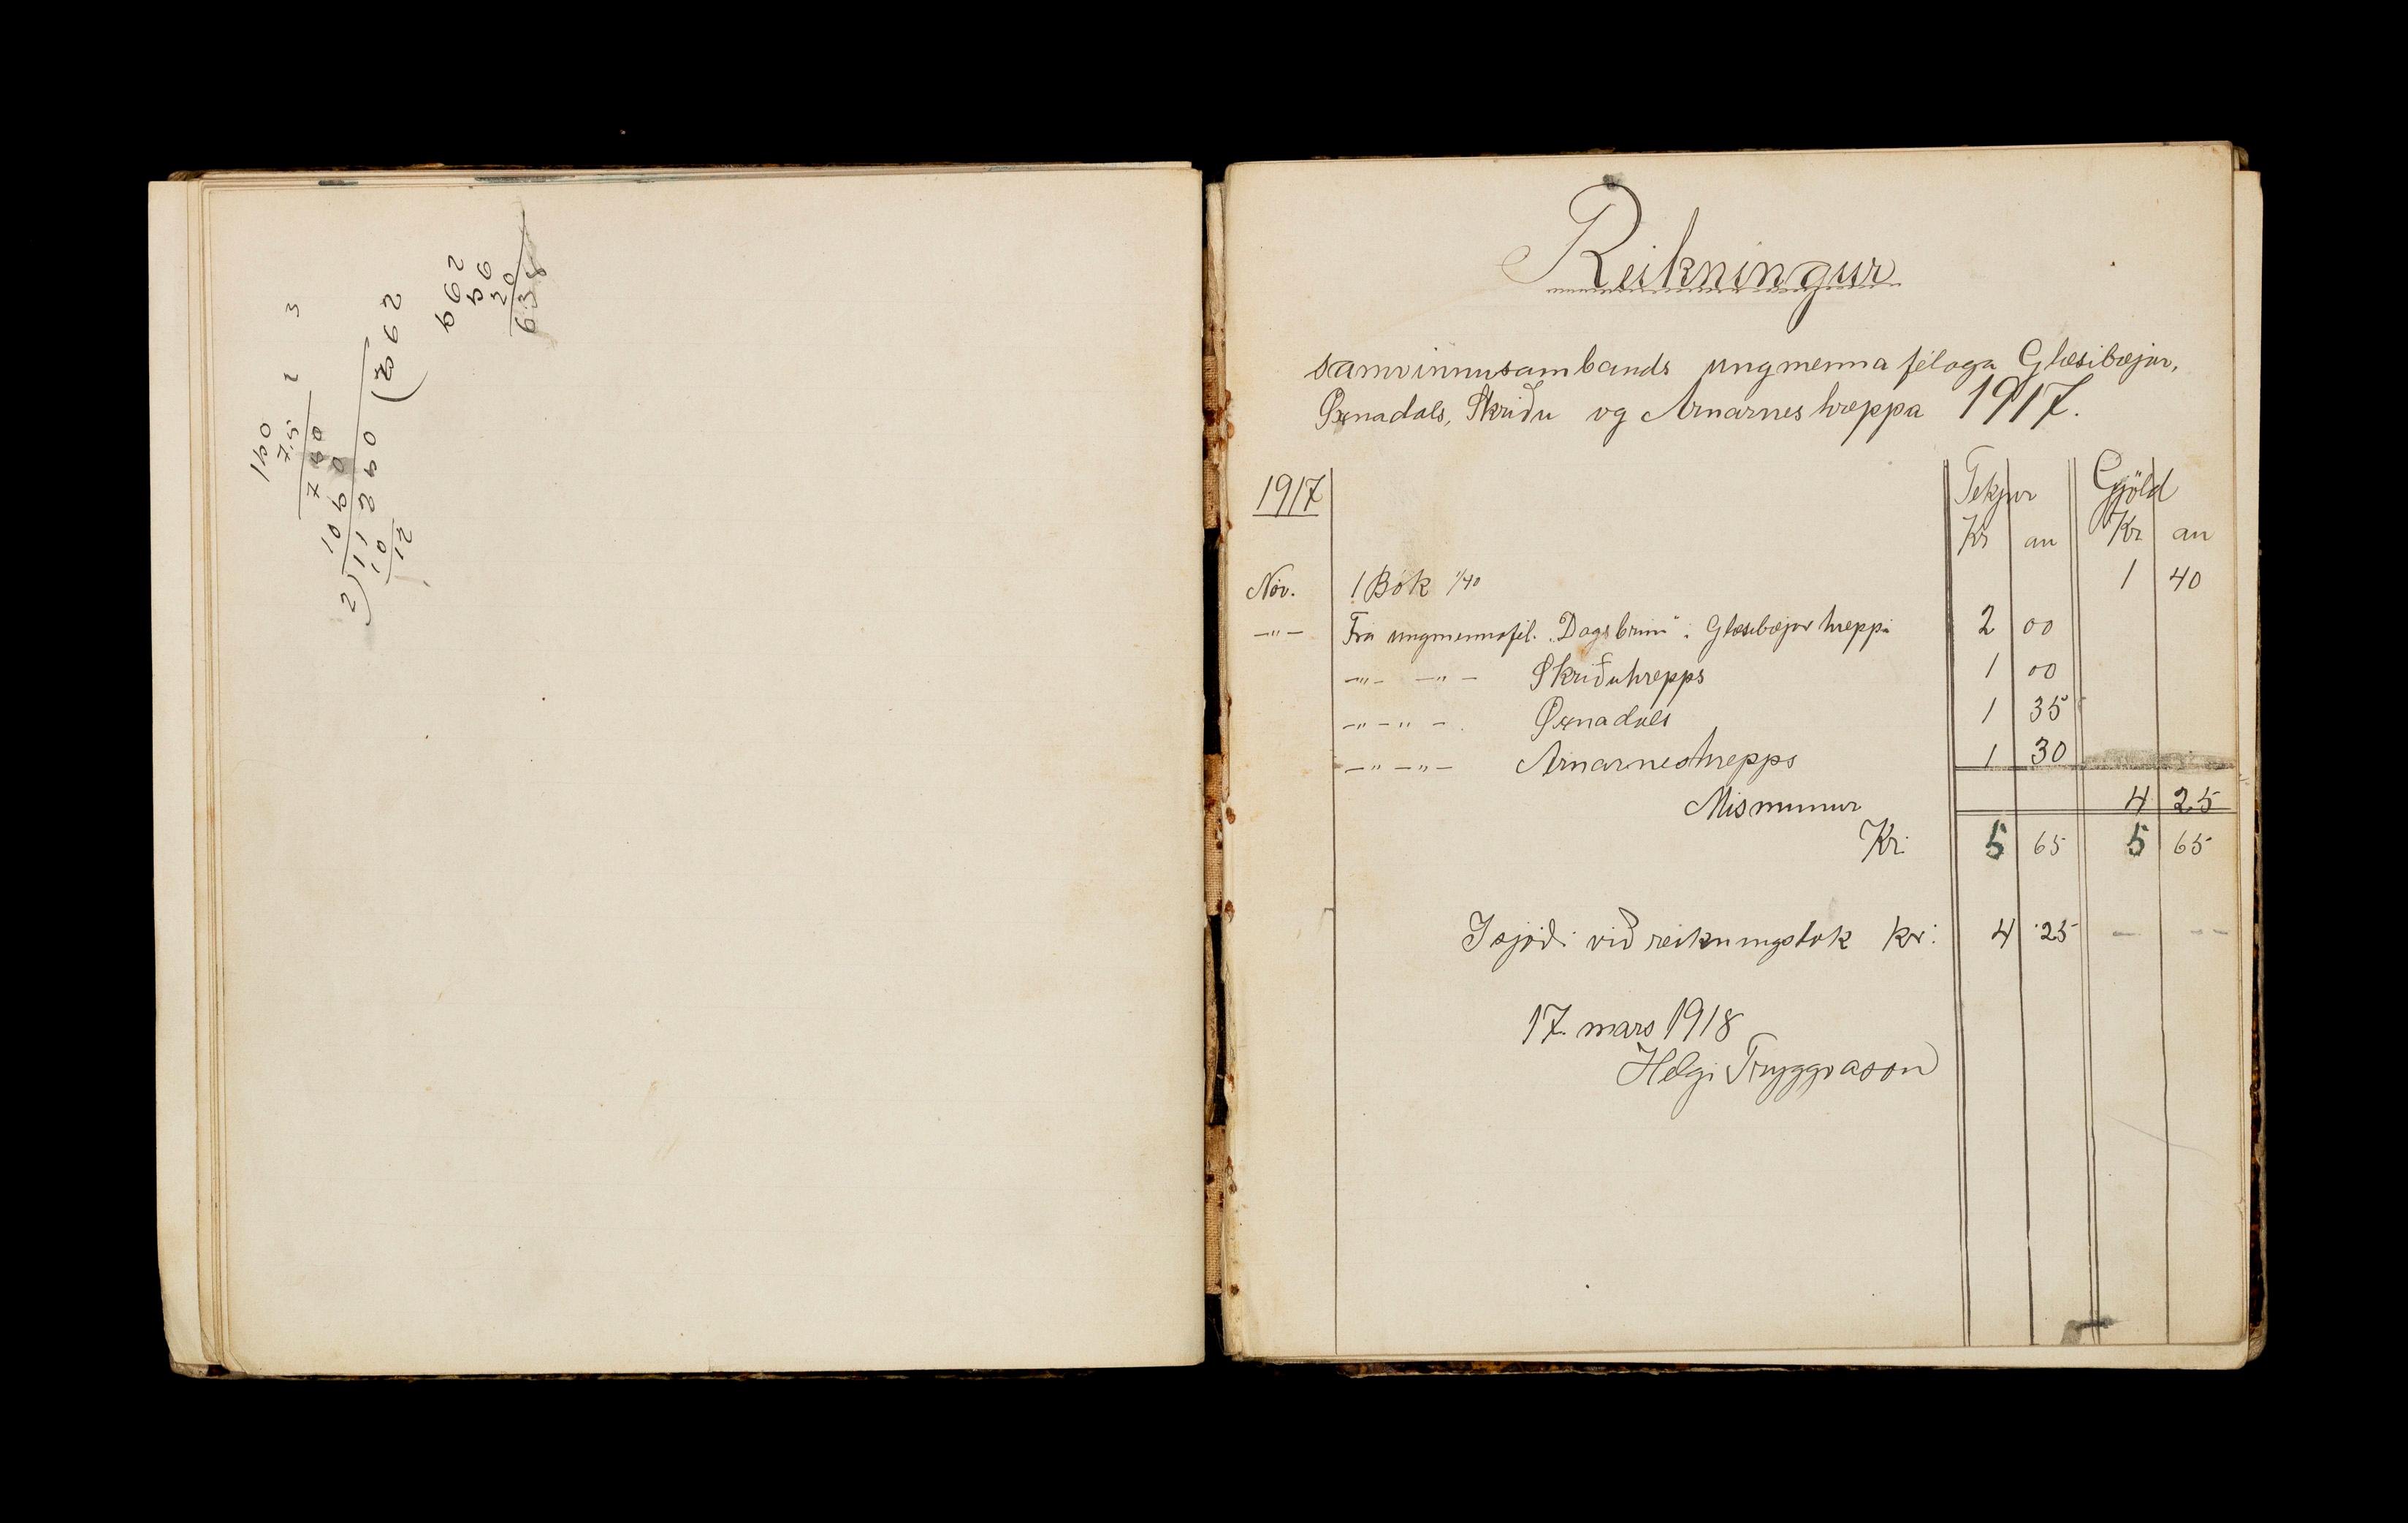 Reikningur
samvinnusambands ungmenna féloga Glæsibæjar,
Øxnadals, Skriðu og Arnarnes hreppa 1917.
1917 Tekjur Gjöld
Kr au Kr au
Nóv. 1 Bók 1/40 1 40
—"— Frá ungmennafél. „Dagsbrún" í Glæsibæjar hreppi 2 00
—"— —"— Skriðuhrepps 1 00
—"—"— Øxnadals 1 35
—"—"— Arnarneshrepps 1 30
Mismunur 4 25
Kr. 5 65 5 65
I sjóði við reiknungslok kr: 4 25 — --
17. mars 1918
Helgi Tryggvason